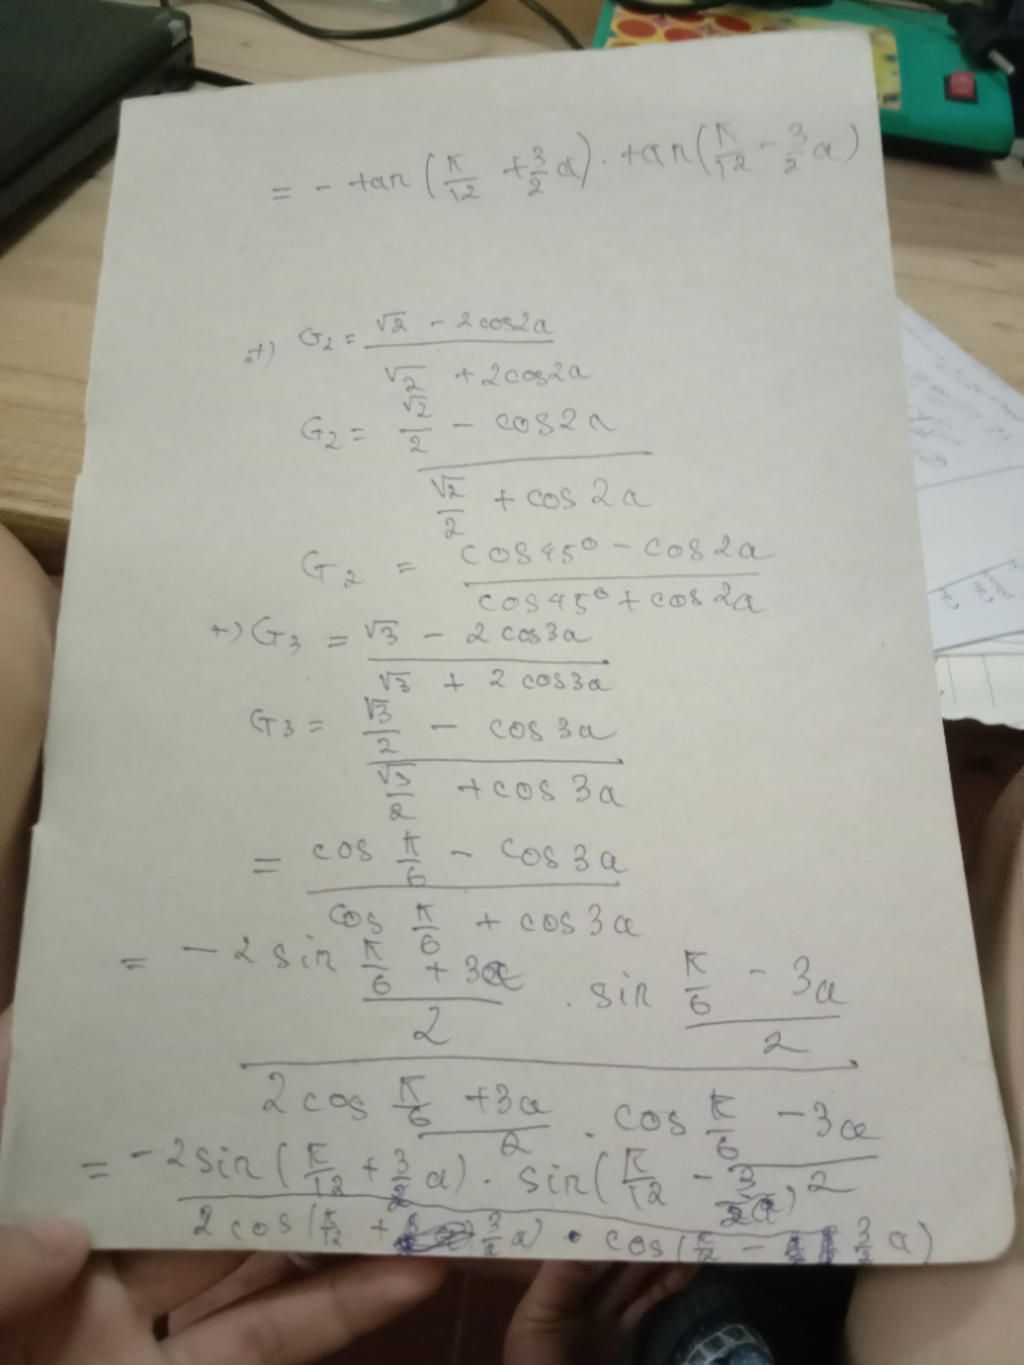 = - tan (π/12 + 3/2 a) . tan (π/12 - 3/2 a)
+) G2 = (√2 - 2cos2a)/(√2 + 2cos2a)
G2 = (√2/2 - cos2a)/(√2/2 + cos2a)
G2 = (cos45° - cos2a)/(cos45° + cos2a)
+) G3 = (√3 - 2cos3a)/(√3 + 2cos3a)
G3 = (√3/2 - cos3a)/(√3/2 + cos3a)
= (cos π/6 - cos3a)/(cos π/6 + cos3a)
= (-2sin (π/6 + 3a)/2 . sin (π/6 - 3a)/2)/(2cos (π/6 + 3a)/2 . cos (π/6 - 3a)/2)
= (-2sin(π/12 + 3/2 a) . sin(π/12 - 3/2 a))/(2cos(π/12 + 3/2 a) . cos(π/12 - 3/2 a))